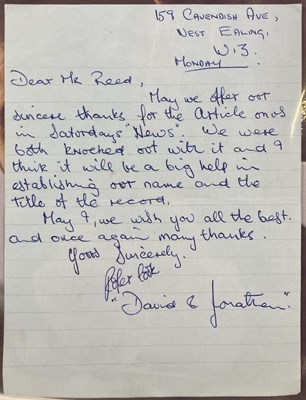 159 CAVENDISH AVE,
WEST EALING,
W.13.
MONDAY
Dear Mr Reed,
May we offer our
sincere thanks for the Article on us
in Saturdays "News". We were
both knocked out with it and I
think it will be a big help in
establishing our name and the
title of the record.
May I, we wish you all the best.
and once again many thanks.
Yours Sincerely.
"David & Jonathan".